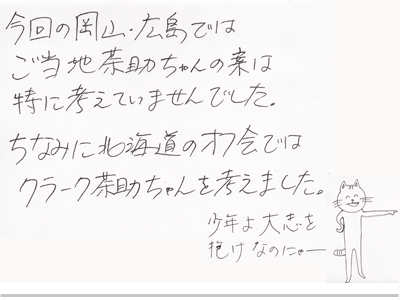 今回の岡山・広島では
ご当地茶助ちゃんの案は
特に考えていませんでした。
ちなみに北海道のオフ会では
クラーク茶助ちゃんを考えました。
少年よ大志を
抱けなのにゃー